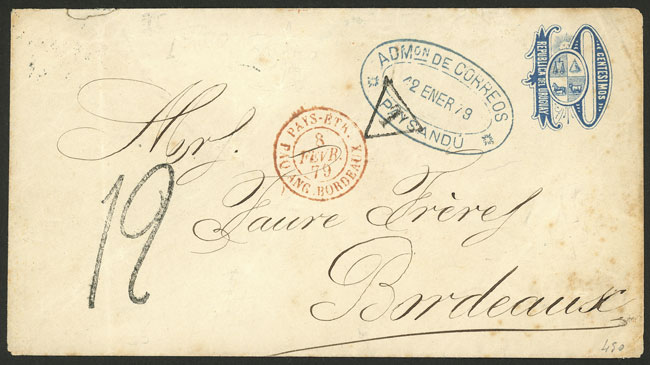 CENTESIMOS
REPUBLICA DEL URUGUAY
ADMON DE CORREOS
12 ENER 79
PAYSANDÚ
T
PAYS-ETR.
8
FEVR.
79
PAQ. ANG. BORDEAUX
Mrs.
Faure Frères
Bordeaux
12
450